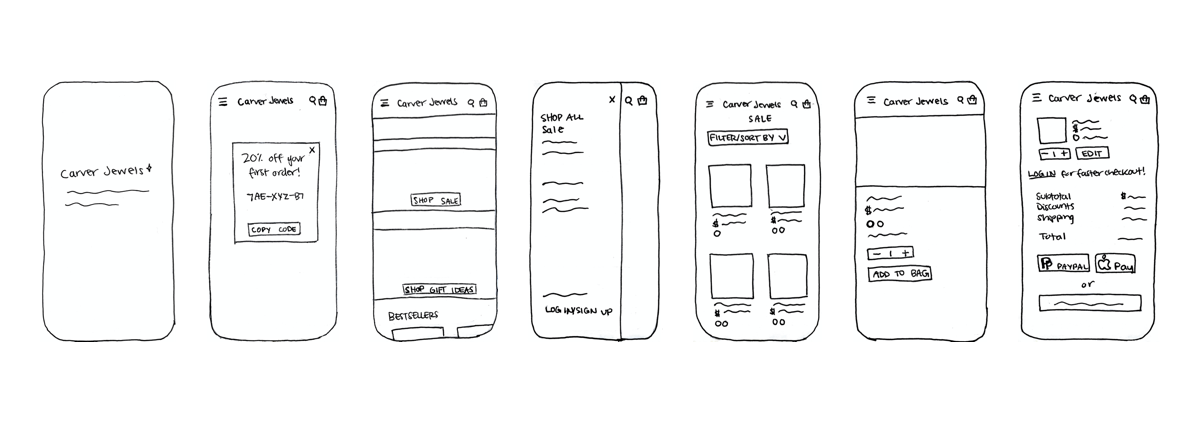 Carver Jewels
Carver Jewels
X
20% off your
first order!
7AE-XYZ-87
COPY CODE
Carver Jewels
SHOP SALE
SHOP GIFT IDEAS
BESTSELLERS
X
SHOP ALL
Sale
LOG IN/SIGN UP
Carver Jewels
SALE
FILTER/SORT BY V
$
$
$
$
Carver Jewels
$
- 1 +
ADD TO BAG
Carver Jewels
$
- 1 + EDIT
LOG IN for faster checkout!
Subtotal $
Discounts
Shipping
Total
PAYPAL Pay
or